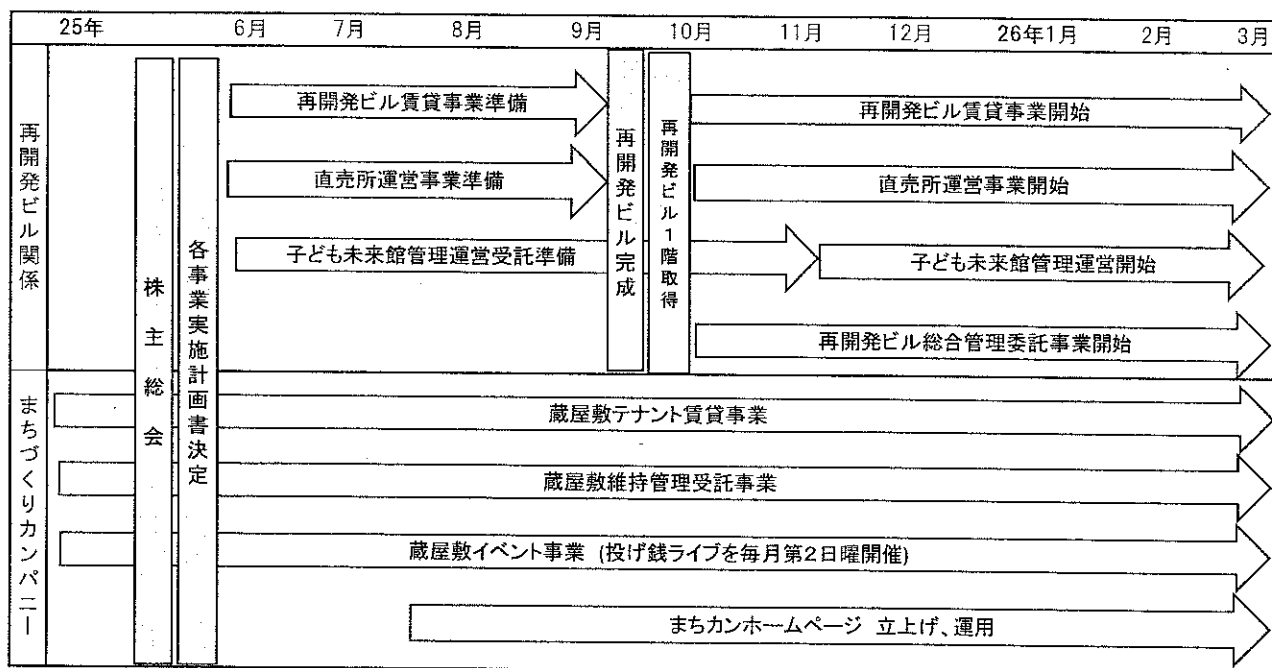 25年 6月 7月 8月 9月 10月 11月 12月 26年1月 2月 3月
再開発ビル関係
株主総会
各事業実施計画書決定
再開発ビル賃貸事業準備
直売所運営事業準備
子ども未来館管理運営受託準備
再開発ビル完成
再開発ビル1階取得
再開発ビル賃貸事業開始
直売所運営事業開始
子ども未来館管理運営開始
再開発ビル総合管理委託事業開始
まちづくりカンパニー
蔵屋敷テナント賃貸事業
蔵屋敷維持管理受託事業
蔵屋敷イベント事業 (投げ銭ライブを毎月第2日曜開催)
まちカンホームページ 立上げ、運用